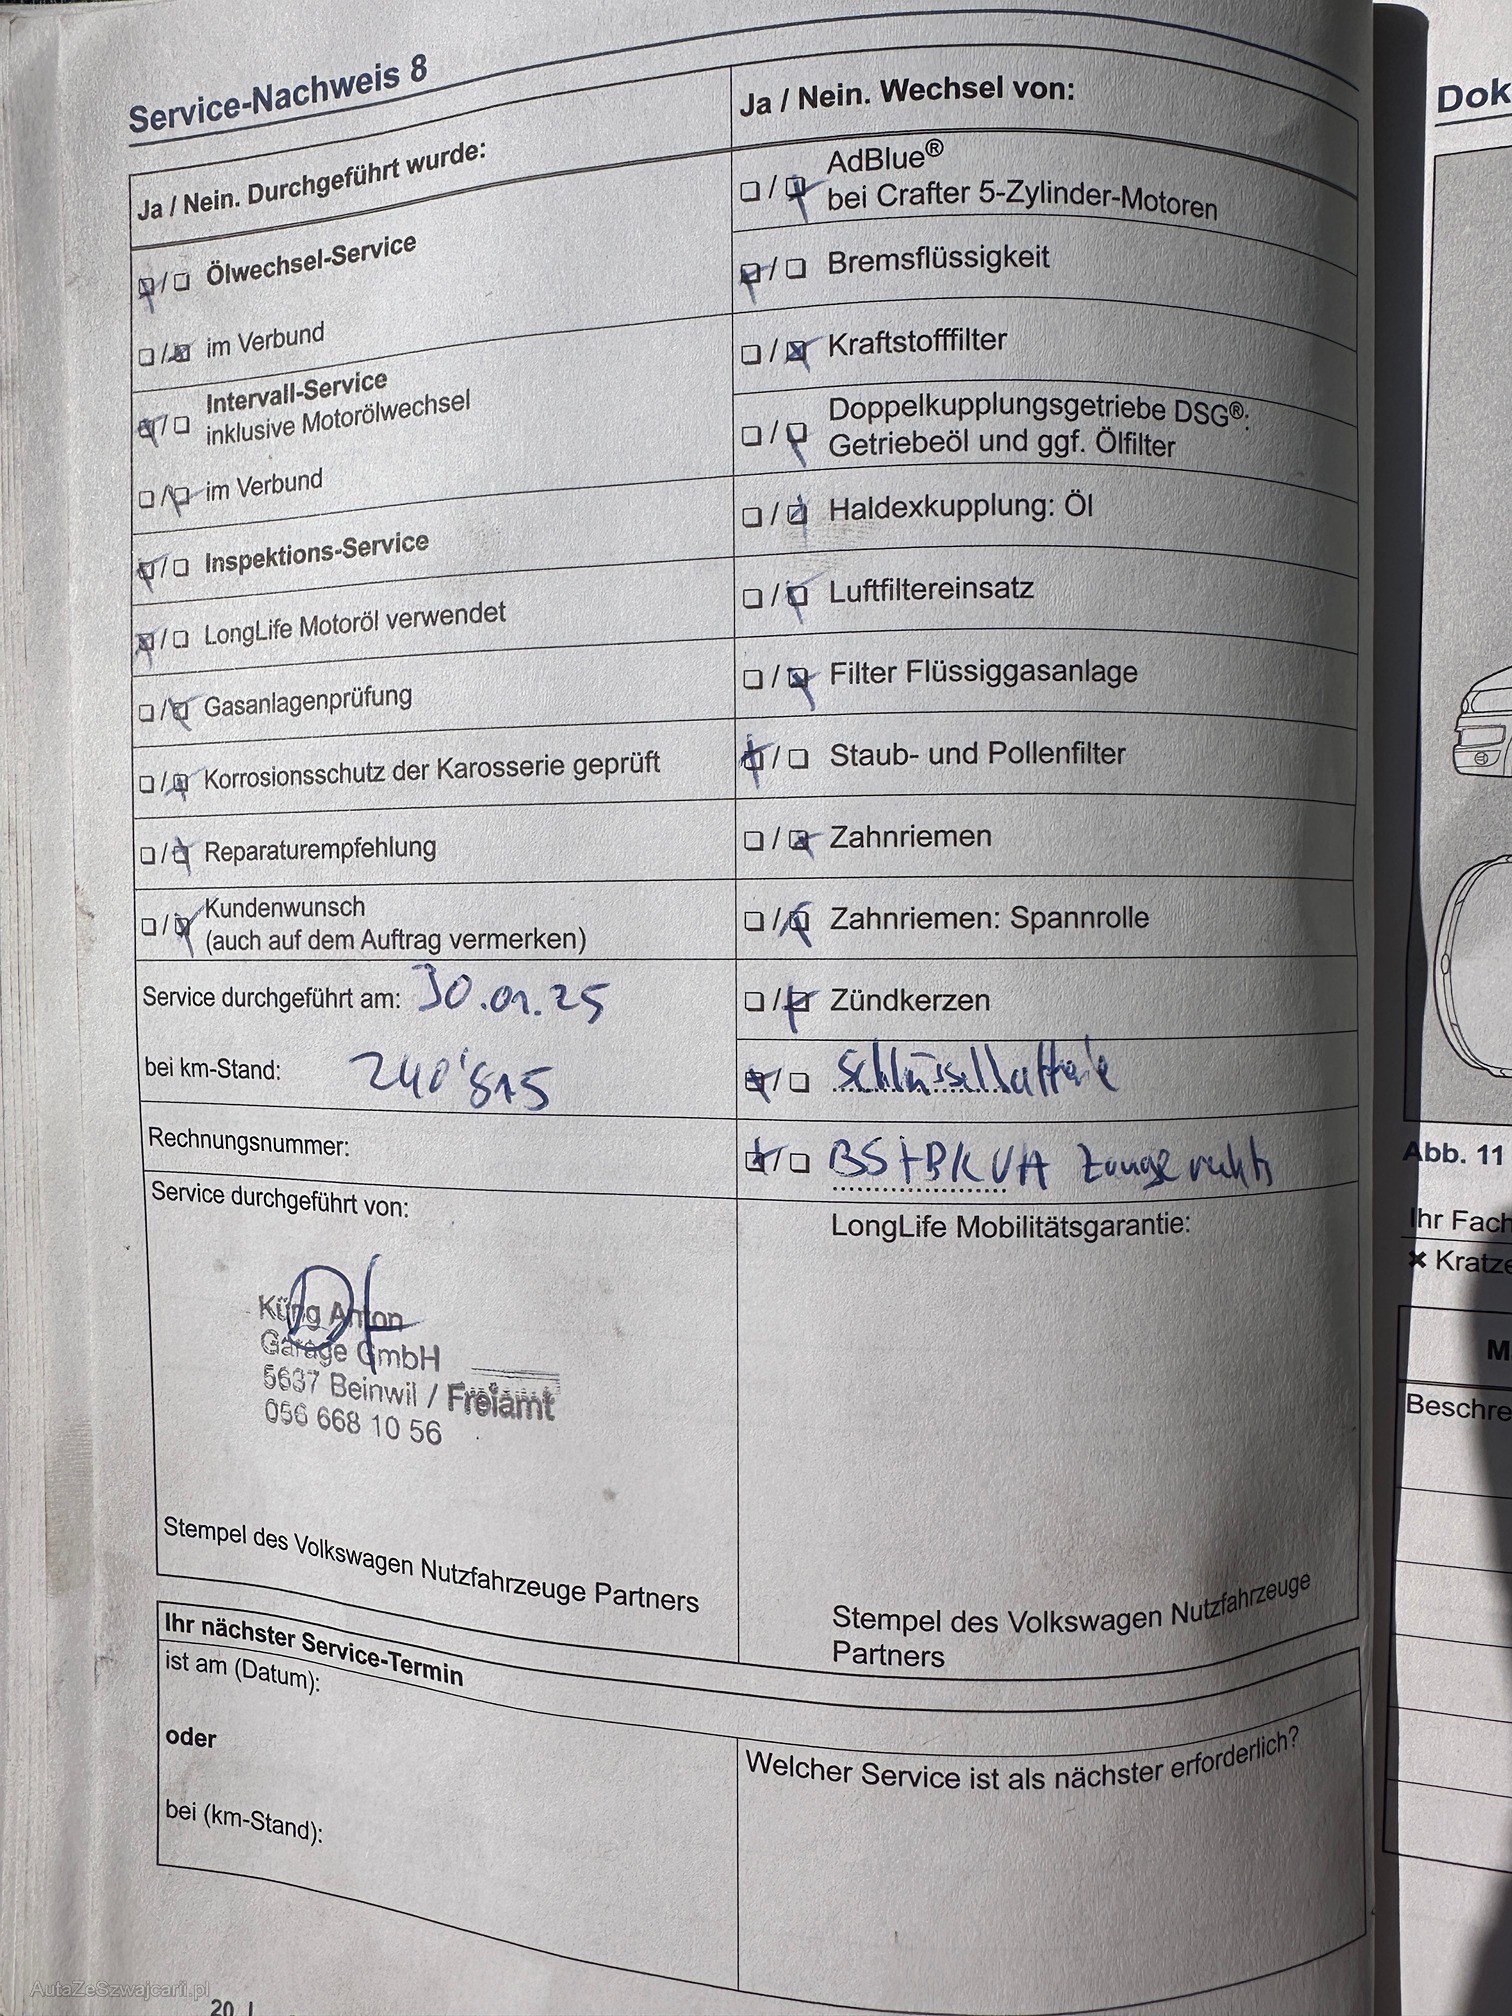 Service-Nachweis 8
Ja / Nein. Durchgeführt wurde:
❏ / ❏ Ölwechsel-Service
❏ / ❏ im Verbund
Intervall-Service
❏ / ❏ inklusive Motorölwechsel
❏ / ❏ im Verbund
❏ / ❏ Inspektions-Service
❏ / ❏ LongLife Motoröl verwendet
❏ / ❏ Gasanlagenprüfung
❏ / ❏ Korrosionsschutz der Karosserie geprüft
❏ / ❏ Reparaturempfehlung
❏ / ❏ Kundenwunsch
(auch auf dem Auftrag vermerken)
Service durchgeführt am: 30.01.25
bei km-Stand: 240'815
Rechnungsnummer:
Service durchgeführt von:
Küng Anton
Garage GmbH
5637 Beinwil / Freiamt
056 668 10 56
Stempel des Volkswagen Nutzfahrzeuge Partners
Ja / Nein. Wechsel von:
AdBlue®
❏ / ❏ bei Crafter 5-Zylinder-Motoren
❏ / ❏ Bremsflüssigkeit
❏ / ❏ Kraftstofffilter
Doppelkupplungsgetriebe DSG®:
❏ / ❏ Getriebeöl und ggf. Ölfilter
❏ / ❏ Haldexkupplung: Öl
❏ / ❏ Luftfiltereinsatz
❏ / ❏ Filter Flüssiggasanlage
❏ / ❏ Staub- und Pollenfilter
❏ / ❏ Zahnriemen
❏ / ❏ Zahnriemen: Spannrolle
❏ / ❏ Zündkerzen
❏ / ❏ Schlüsselbatterie
❏ / ❏ BS+BK VA Zange rechts
LongLife Mobilitätsgarantie:
Stempel des Volkswagen Nutzfahrzeuge
Partners
Ihr nächster Service-Termin
ist am (Datum):
oder
bei (km-Stand):
Welcher Service ist als nächster erforderlich?
20
Dok
Abb. 11
Ihr Fach
✖ Kratze
M
Beschre
AutaZeSzwajcarii.pl